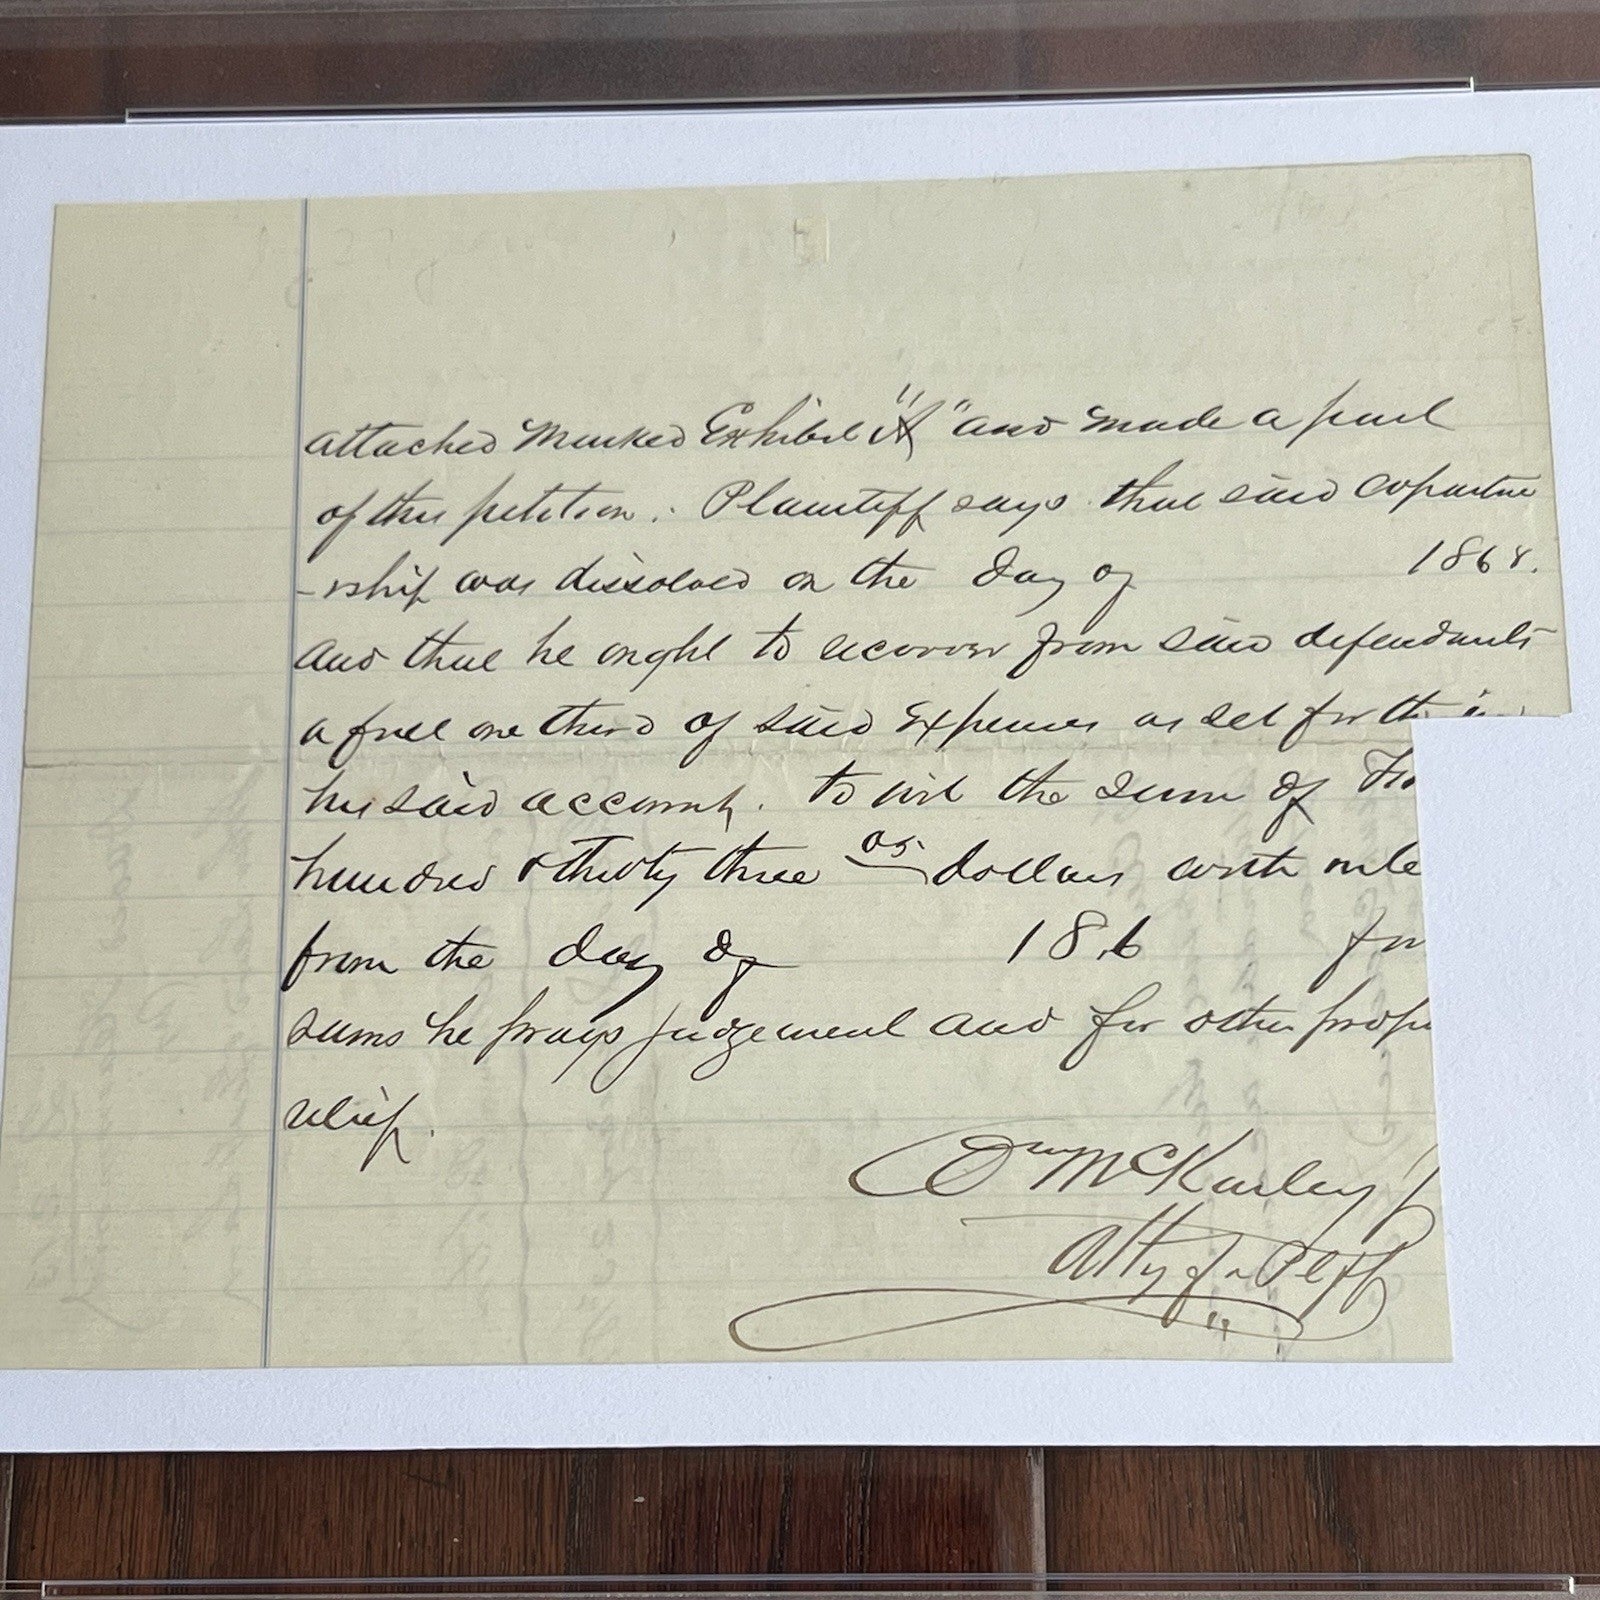 attached Marked Exhibit "A" and made a part
of this petition. Plaintiff says that said copartne
-rship was dissolved on the day of 1868.
and that he ought to recover from said defendants
a full one third of said Expenses as set forth in
his said account. to wit the sum of
hundred & thirty three 05 dollars with inte
from the day of 186 for
sums he prays judgement and for other prope
relief.
Wm McKinley Jr
Atty for Plff